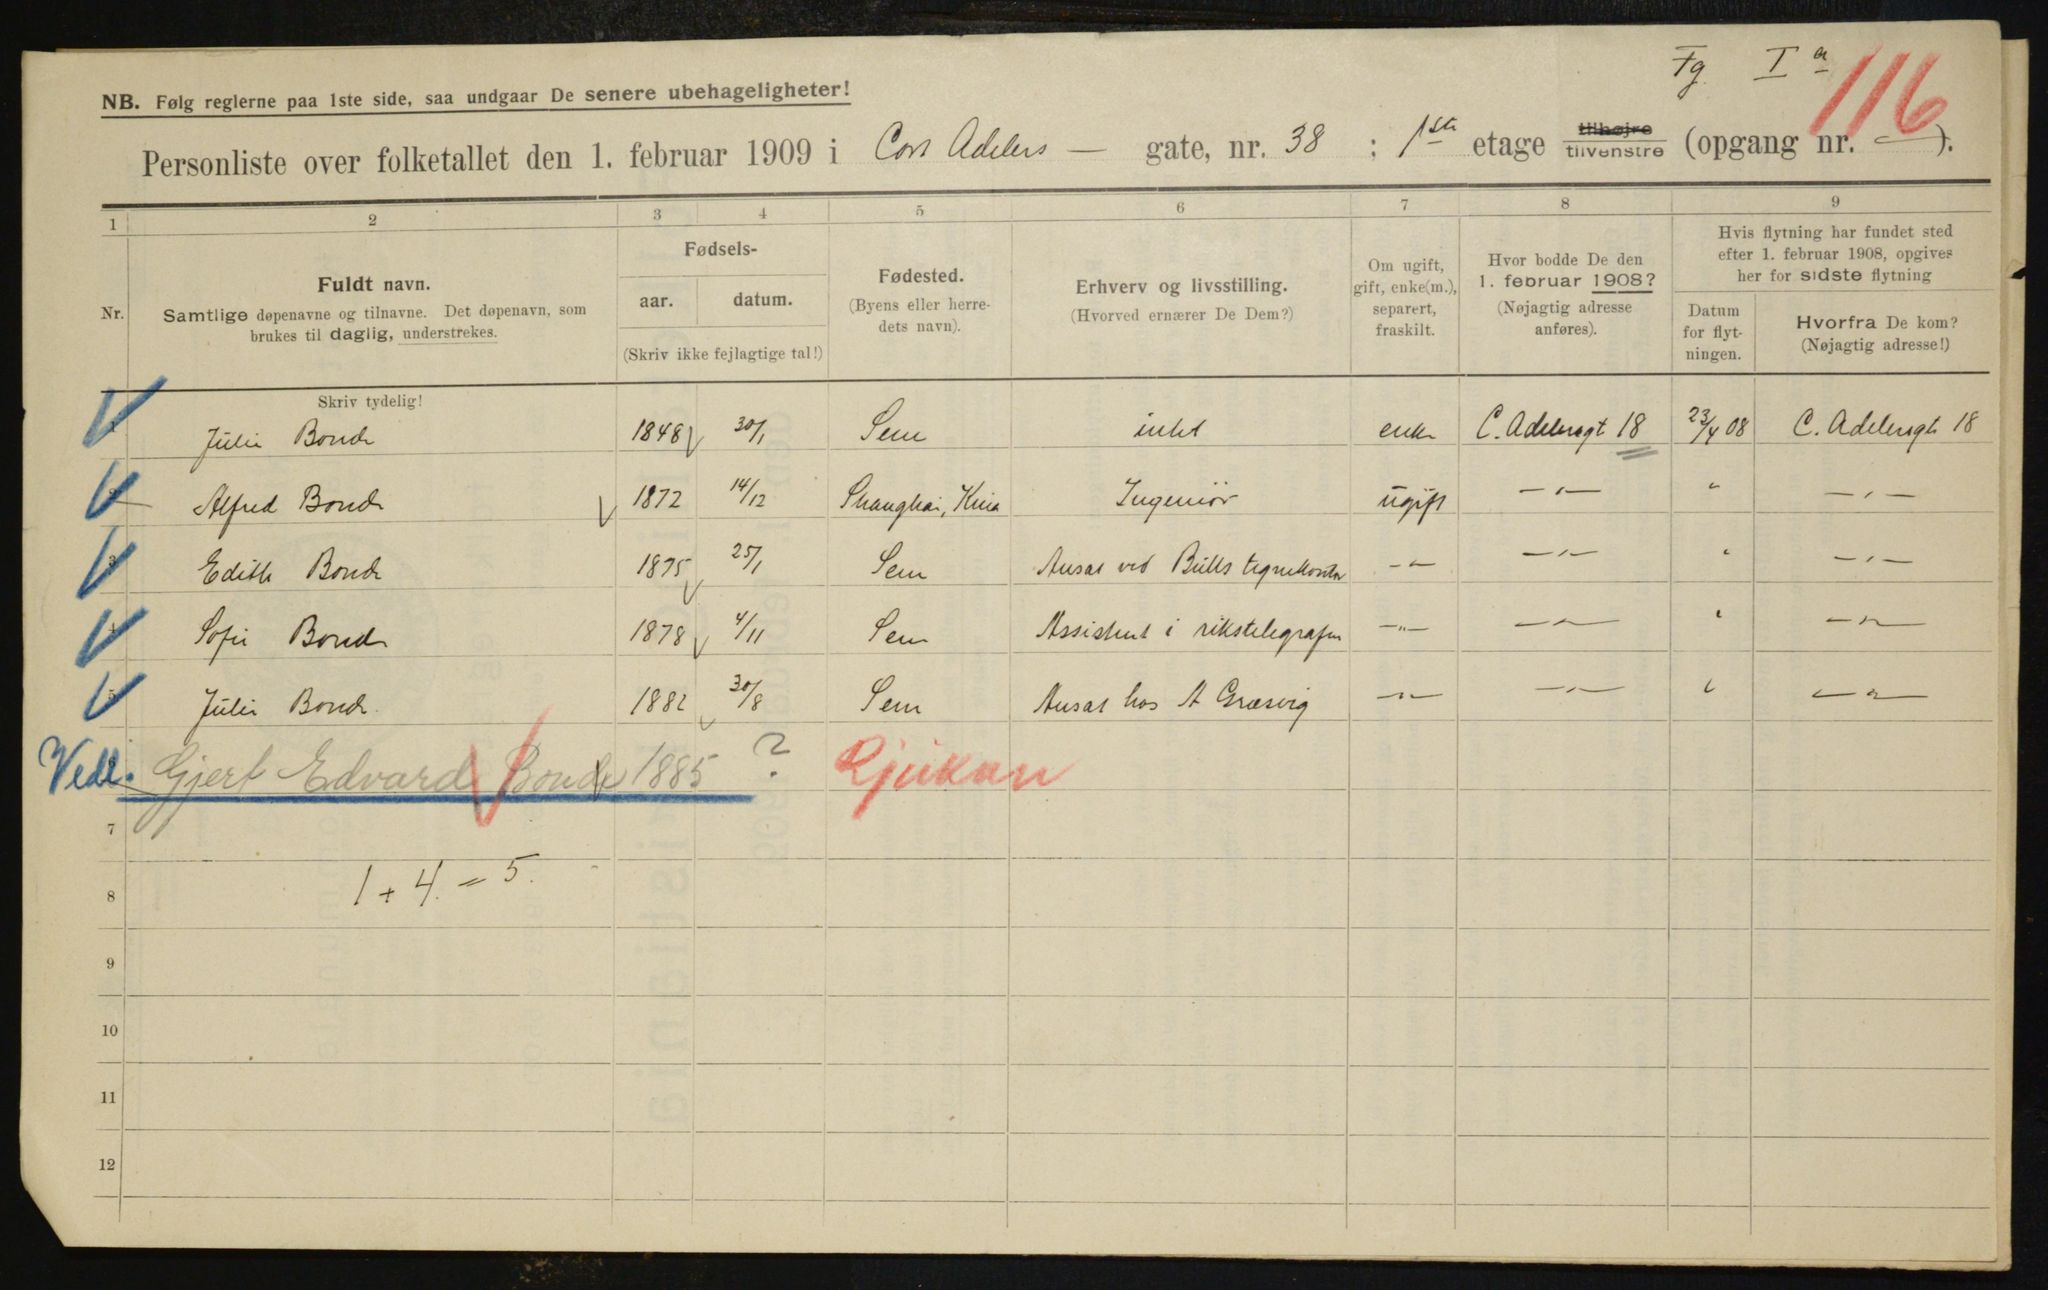 Fg. I a 116
NB. Følg reglerne paa 1ste side, saa undgaar De senere ubehageligheter!
Personliste over folketallet den 1. februar 1909 i Cort Adelers — gate, nr. 38 ; 1ste etage tilhøjre tilvenstre (opgang nr. — ).
1 2 3 4 5 6 7 8 9
Nr.
Fuldt navn.
Samtlige døpenavne og tilnavne. Det døpenavn, som
brukes til daglig, understrekes.
Fødsels-
aar. datum.
(Skriv ikke fejlagtige tal!)
Fødested.
(Byens eller herre-
dets navn).
Erhverv og livsstilling.
(Hvorved ernærer De Dem?)
Om ugift,
gift, enke(m.),
separert,
fraskilt.
Hvor bodde De den
1. februar 1908?
(Nøjagtig adresse
anføres).
Hvis flytning har fundet sted
efter 1. februar 1908, opgives
her for sidste flytning
Datum
for flyt-
ningen.
Hvorfra De kom?
(Nøjagtig adresse!)
Skriv tydelig!
1 Julie Bonde 1848 30/1 Sem intet enke C. Adelersgt 18 23/4 08 C. Adelersgt 18
2 Alfred Bonde 1872 14/12 Shanghai, Kina Ingeniør ugift —"— " —"—
3 Edith Bonde 1875 25/1 Sem Ansat ved Bulls tegnekontor —"— —"— " —"—
4 Sofie Bonde 1878 4/11 Sem Assistent i rikstelegrafen —"— —"— " —"—
5 Julie Bonde 1882 30/8 Sem Ansat hos A Græsvig —"— —"— " —"—
Vedl. Gjert Edvard Bonde 1885 ? Rjukan
7
1 + 4 = 5.
8
9
10
11
12